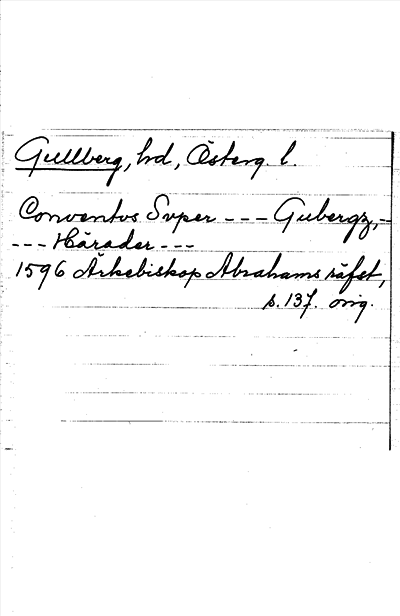 Gullberg, hd, Österg. l.
Conventvs Svper --- Gubergz,-
--- Härader ---
1596 Ärkebiskop Abrahams räfst,
s. 137. orig.